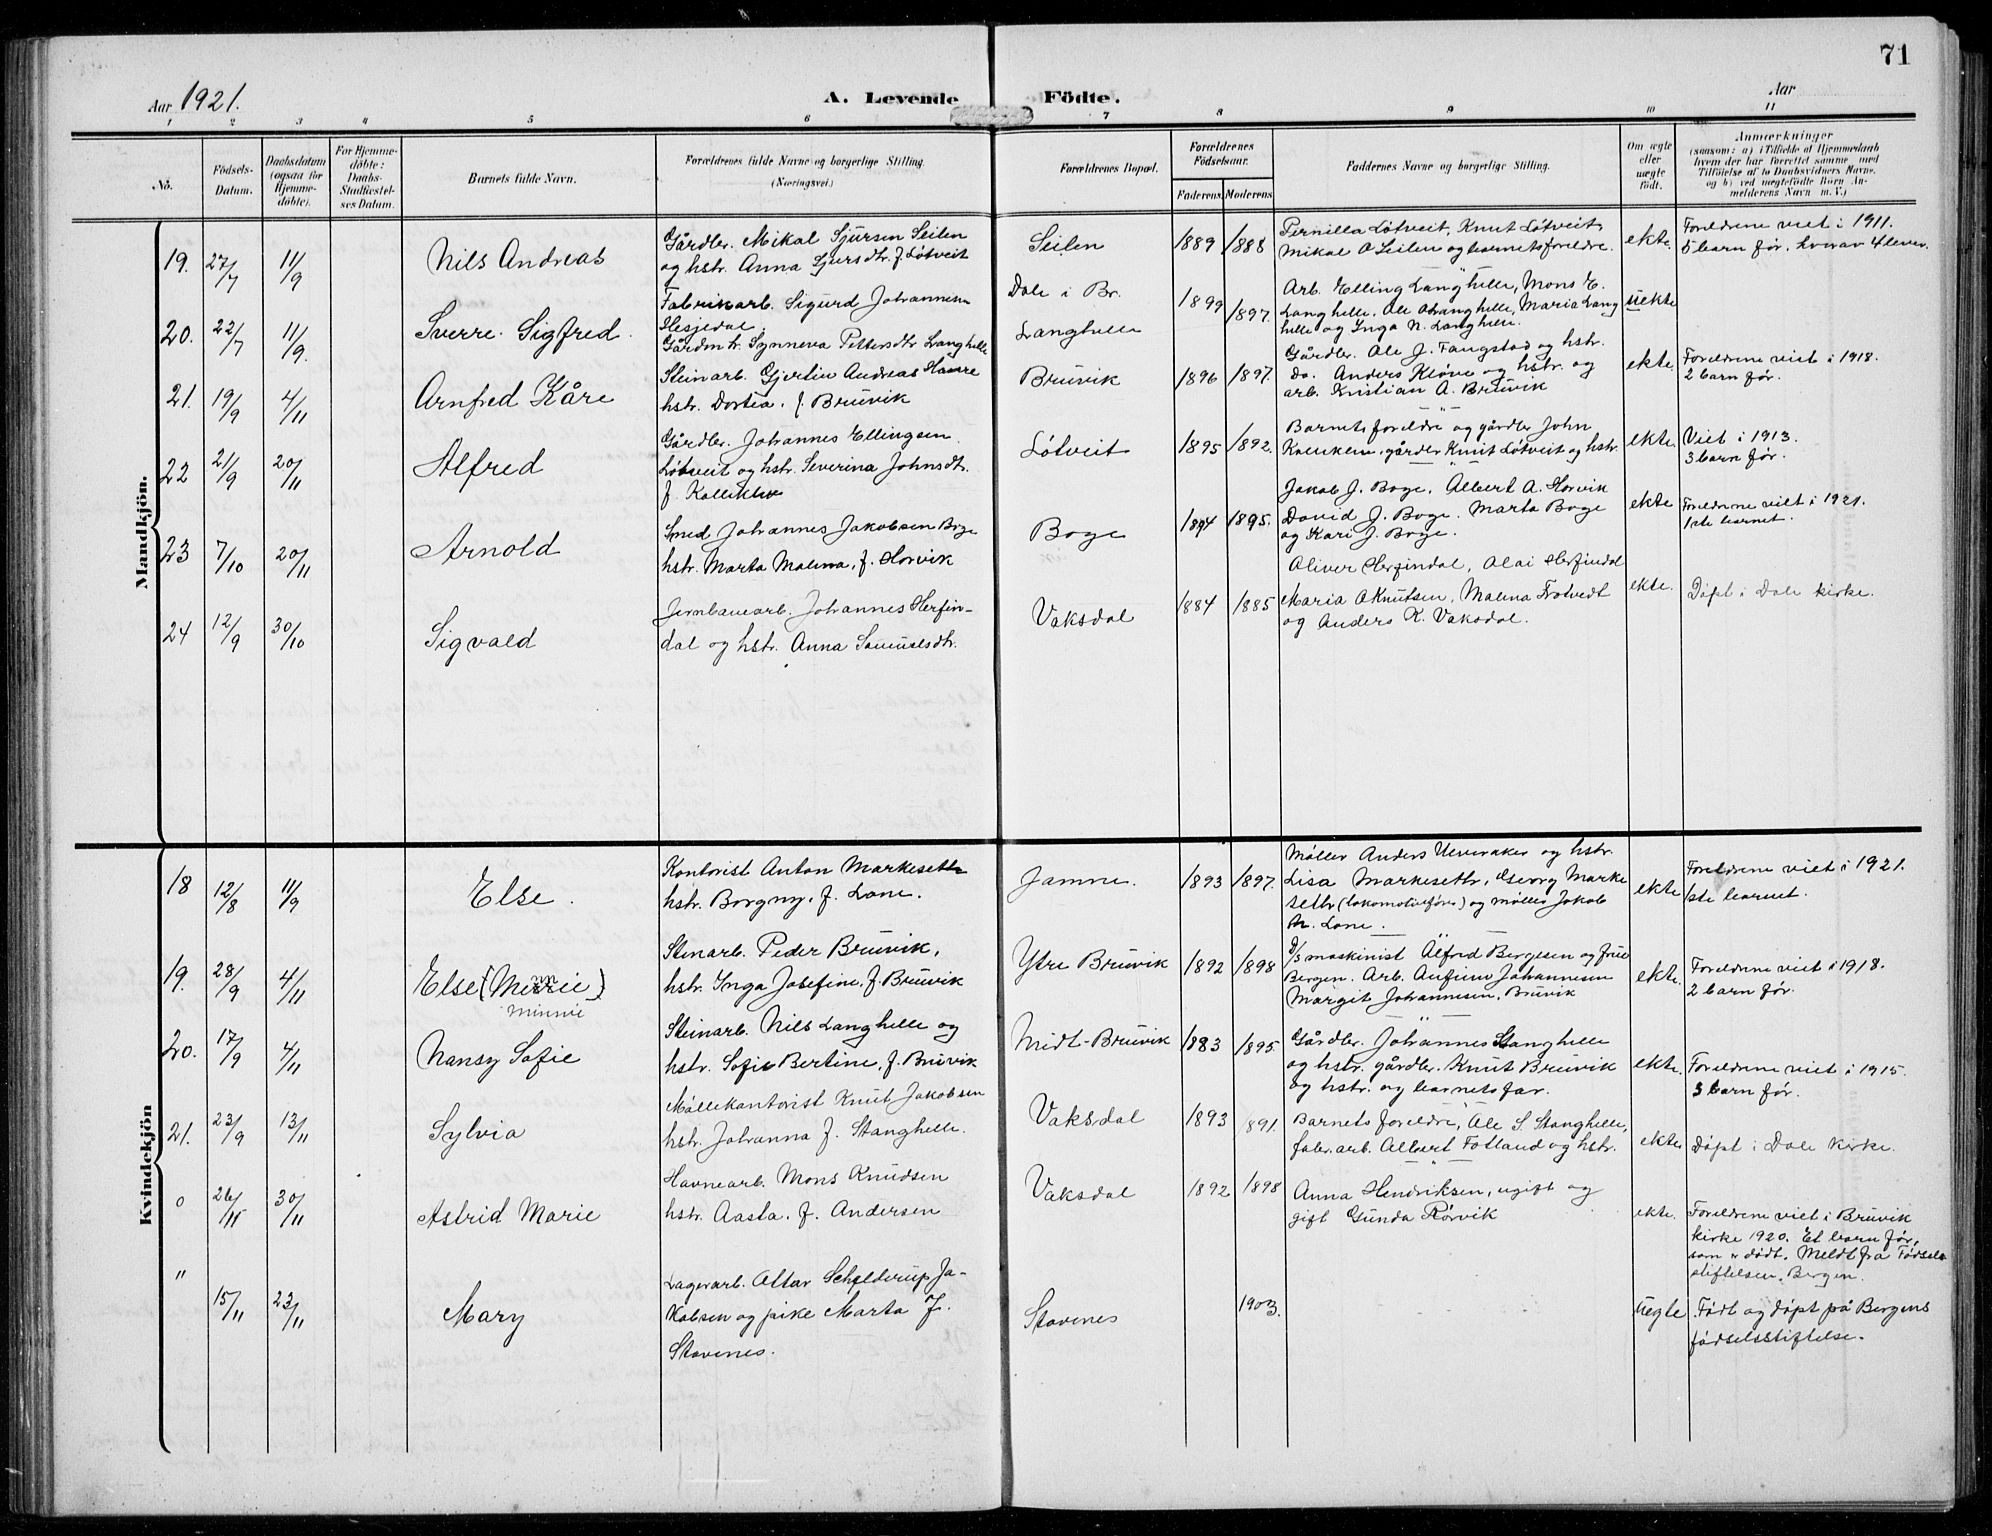 71
Aar 1921. A. Levende Födte. Aar
1 2 3 4 5 6 7 8 9 10 11
No.
Födsels-
Datum.
Daabsdatum
(ogsaa for
Hjemme-
döbte).
For Hjemme-
döbte:
Daabs-
Stadfæstel-
ses Datum.
Barnets fulde Navn.
Forældrenes fulde Navne og borgerlige Stilling.
(Næringsvei.)
Forældrenes Bopæl.
Forældrenes
Födselsaar.
Faderens. Moderens
Faddernes Navne og borgerlige Stilling.
Om ægte
eller
uægte
födt.
Anmærkninger
(saasom: a) i Tilfælde af Hjemmedaab
hvem der har forrettet samme, med
Tilföielse af to Daabsvidners Navne,
og b) ved uægtefödte Börn An-
melderens Navn m. V.)
Mandkjön.
19. 27/7 11/9 Nils Andreas
Gårdbr. Mikal Sjursen Seilen
og hstr. Anna Sjursdtr. f. Løtveit
Seilen 1889 1888
Pernilla Løtveit, Knut Løtveit,
Mikal O Seilen og barnets foreldre.
ekte.
Foreldrene viet i 1911.
5 barn før, hverav 4 lever.
20. 22/7 11/9. Sverre Sigfred.
Fabrikarb. Sigurd Johannesen
Hesjedal,
Gårdm tr. Synneva Pettersdtr Langhelle
Dale i Br.
Langhelle
1899 1897.
Arb. Elling Langhelle, Mons E.
Langhelle, Ole O Langhelle, Maria Lang
helle og Inga N. Langhelle.
uekte
21. 19/9 4/11 Arnfred Kåre
Steinarb. Gjertin Andreas Hamre
hstr. Dortea. f. Bruvik
Bruvik 1896 1897.
Gårdbr. Ole J. Fangstad og hstr.
Do. Anders Kløve og hstr. og
arb. Kristian A. Bruvik
ekte.
Foreldrene viet i 1918.
2 barn før.
22 21/9 20/11 Alfred
Gårdbr. Johannes Ellingsen
Løtveit og hstr. Severina Johnsdtr.
f. Kallekleiv
Løtveit 1895 1892.
Barnets foreldre og gårdbr John
gårdbr Knut Løtveit og hstr.
ekte.
Viet i 1913.
3 barn før.
23 7/10 20/11 Arnold
Smed Johannes Jakobsen Boge
hstr. Marta Malena, f. Horvik
Boge 1894 1895.
Jakob J. Boge, Albert A. Horvik
David J. Boge, Marta Boge
og Kari J. Boge.
ekte
Foreldrene viet i 1921.
1ste barnet.
24 12/9 30/10 Sigvald
Jernbanearb. Johannes Herfin-
dal og hstr. Anna Samuelsdtr.
Vaksdal 1884 1885
Oliver Herfindal, Olai Herfindal
Maria O Knutsen, Malena Trotvedt
og Anders K. Vaksdal.
ekte.
Døpt i Dale kirke.
Kvindekjön
18 12/8 11/9 Else.
Kontorist Anton Markeseth
hstr. Borgny, f. Lone.
Jamne. 1893 1897.
Møller Anders Ulveraker og hstr.
Lisa Markeseth, Georg Marke
seth (lokomotivfører) og møller Jakob
M. Lone.
ekte
Foreldrene viet i 1921.
1ste barnet.
19. 28/9 4/11 Else (Minnie)
Minnie
Stenarb. Peder Bruvik,
hstr. Inga Josefine, f. Bruvik
Ytre Bruvik 1892 1898
D/S maskinist Alfred Bergesen og frue
Bergen. Arb. Anfinn Johannesen
Margit Johannesen, Bruvik
ekte.
Foreldrene viet i 1918.
2 barn før.
20. 17/9 4/11 Nansy Sofie
Steinarb. Nils Langhelle og
hstr. Sofie Bertine, f. Bruvik
Midt-Bruvik 1883 1895.
Gårdbr. Johannes Stanghelle
og hstr. gårdbr. Knut Bruvik
og hstr. og barnets far.
ekte.
Foreldrene viet i 1915.
3 barn før.
21. 23/9 13/11 Sylvia
Møllekontorist Knut Jakobsen
hstr. Johanna f. Stanghelle.
Vaksdal 1893 1891.
Barnets foreldre, Ole S. Stanghelle,
fabr.arb. Albert Fotland og hstr.
ekte
Døpt i Dale kirke.
0 26/11 30/11 Astrid Marie
Havnearb. Mons Knudsen
hstr. Aasta. f. Andersen
Vaksdal 1892 1898
Anna Hendriksen, ugift og
gift Gunda Rørvik
ekte.
Foreldrene viet i Bruvik
kirke 1920. Et barn før,
som er dødt. Meldt fra Fødsels
stiftelsen, Bergen.
" 15/11 23/11 Mary
Lagerarb. Ottar Schelderup Ja-
kobsen og pike Marta J.
Stavenes.
Stavenes 1903.
uegte
Født og døpt på Bergens
fødselsstiftelse.